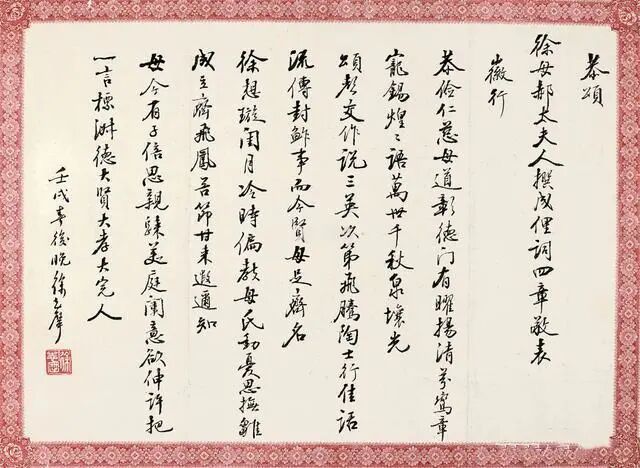 恭頌
徐母郝太夫人撰成俚詞四章敬表
徽行
恭儉仁慈母道彰德門有曜揚清芬鸞章
寵錫煌〻語萬世千秋泉壤光
頌聲交作說三英次第飛騰陶士行佳話
流傳封鮓事而今賢母足齊名
徐想璇閨月冷時偏教母氏動憂思撫雛
成立齊飛鳳苦節甘來遐邇知
母今有子倍思親美庭闈意欲伸許把
一言標淑德大賢大孝大完人
壬戌年後晚徐聲